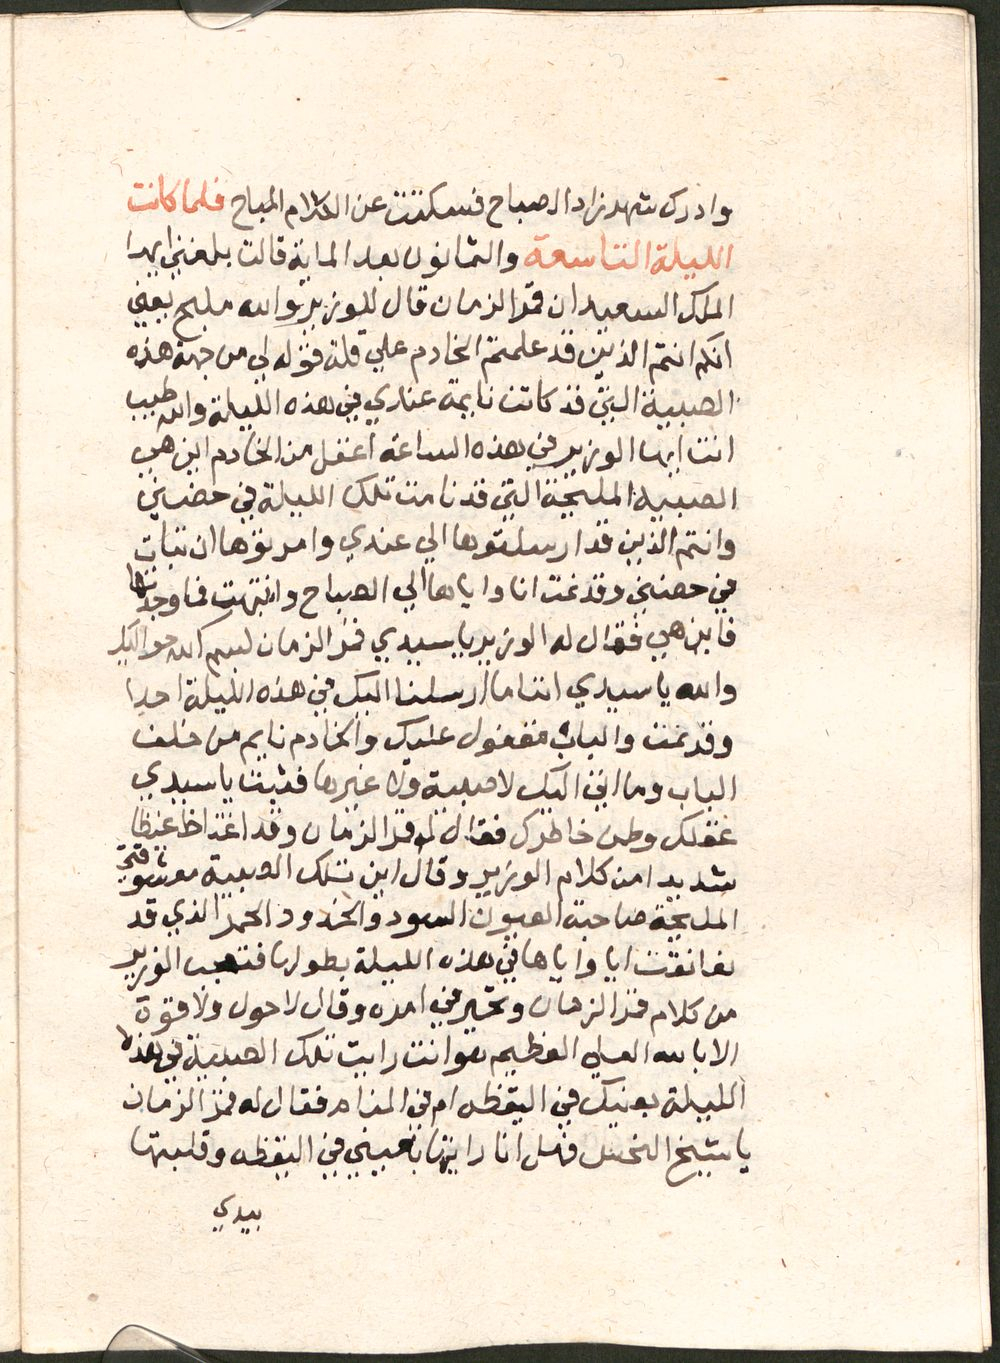 وادرك شهرزاد الصباح فسكتت عن الكلام المباح فلما كانت
الليلة التاسعة والثمانون بعد الماية قالت بلغني ايها
الملك السعيد ان قمر الزمان قال للوزير والله مليح يعني
انكم انتم الذين قد علمتم الخادم علي قلة قوله لي من جهة هذه
الصبية التي قد كانت نايمة عندي في هذه الليلة والله طيب
انت ايها الوزير في هذه الساعة اعقل من الخادم اين هي
الصبية المليحة التي قد نامت تلك الليلة في حضني
وانتم الذين قد ارسلتوها الي عندي وامرتوها ان تبات
في حضني وقد نمت انا واياها الي الصباح وانتبهت فما وجدتها
فاين هي فقال له الوزير يا سيدي قمر الزمان اسم الله حواليك
والله يا سيدي اننا ما ارسلنا اليك في هذه الليلة احدا
وقد نمت والباب مقفول عليك والخادم نايم من خلف
الباب وما اتى اليك لا صبية ولا غيرها فثبت يا سيدي
عقلك وطمن خاطرك فقال له قمر الزمان وقد اغتاظ غيظا
شديدا من كلام الوزير وقال اين تلك الصبية معشوقتي
المليحة صاحبة العيون السود والخدود الحمر الذي قد
تعانقت انا واياها في هذه الليلة بطولها فتعجب الوزير
من كلام قمر الزمان وتحير في امره وقال لا حول ولا قوة
الا بالله العلي العظيم هو انت رايت تلك الصبية في هذه
الليلة بعينك في اليقظه ام في المنام فقال له قمر الزمان
يا شيخ النحس فهل انا رايتها بعيني في اليقظه وقلبتها
بيدي